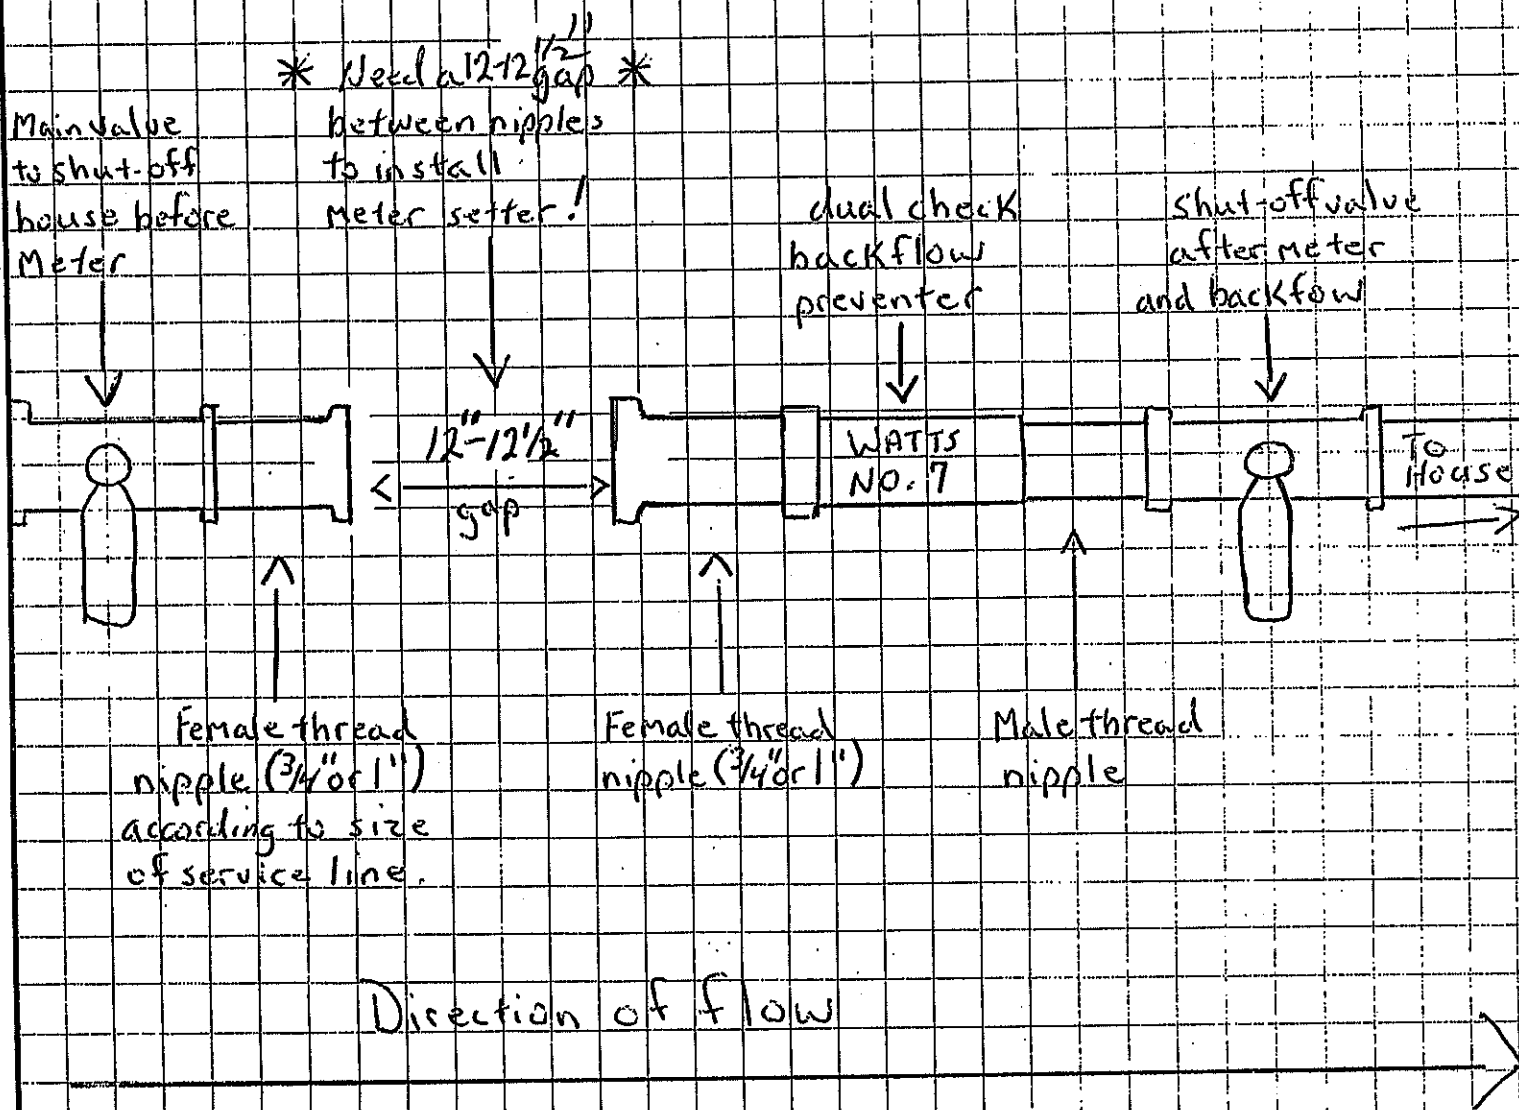 * Need a 12-12 1/2" gap *
between nipples
to install
Meter setter!
Main value
to shut-off
house before
Meter
dual check
backflow
preventer
shut-off value
after meter
and backfow
12"-12 1/2"
gap
WATTS
NO. 7
TO
House
Female thread
nipple (3/4" or 1")
according to size
of service line.
Female thread
nipple (3/4" or 1")
Male thread
nipple
Direction of flow